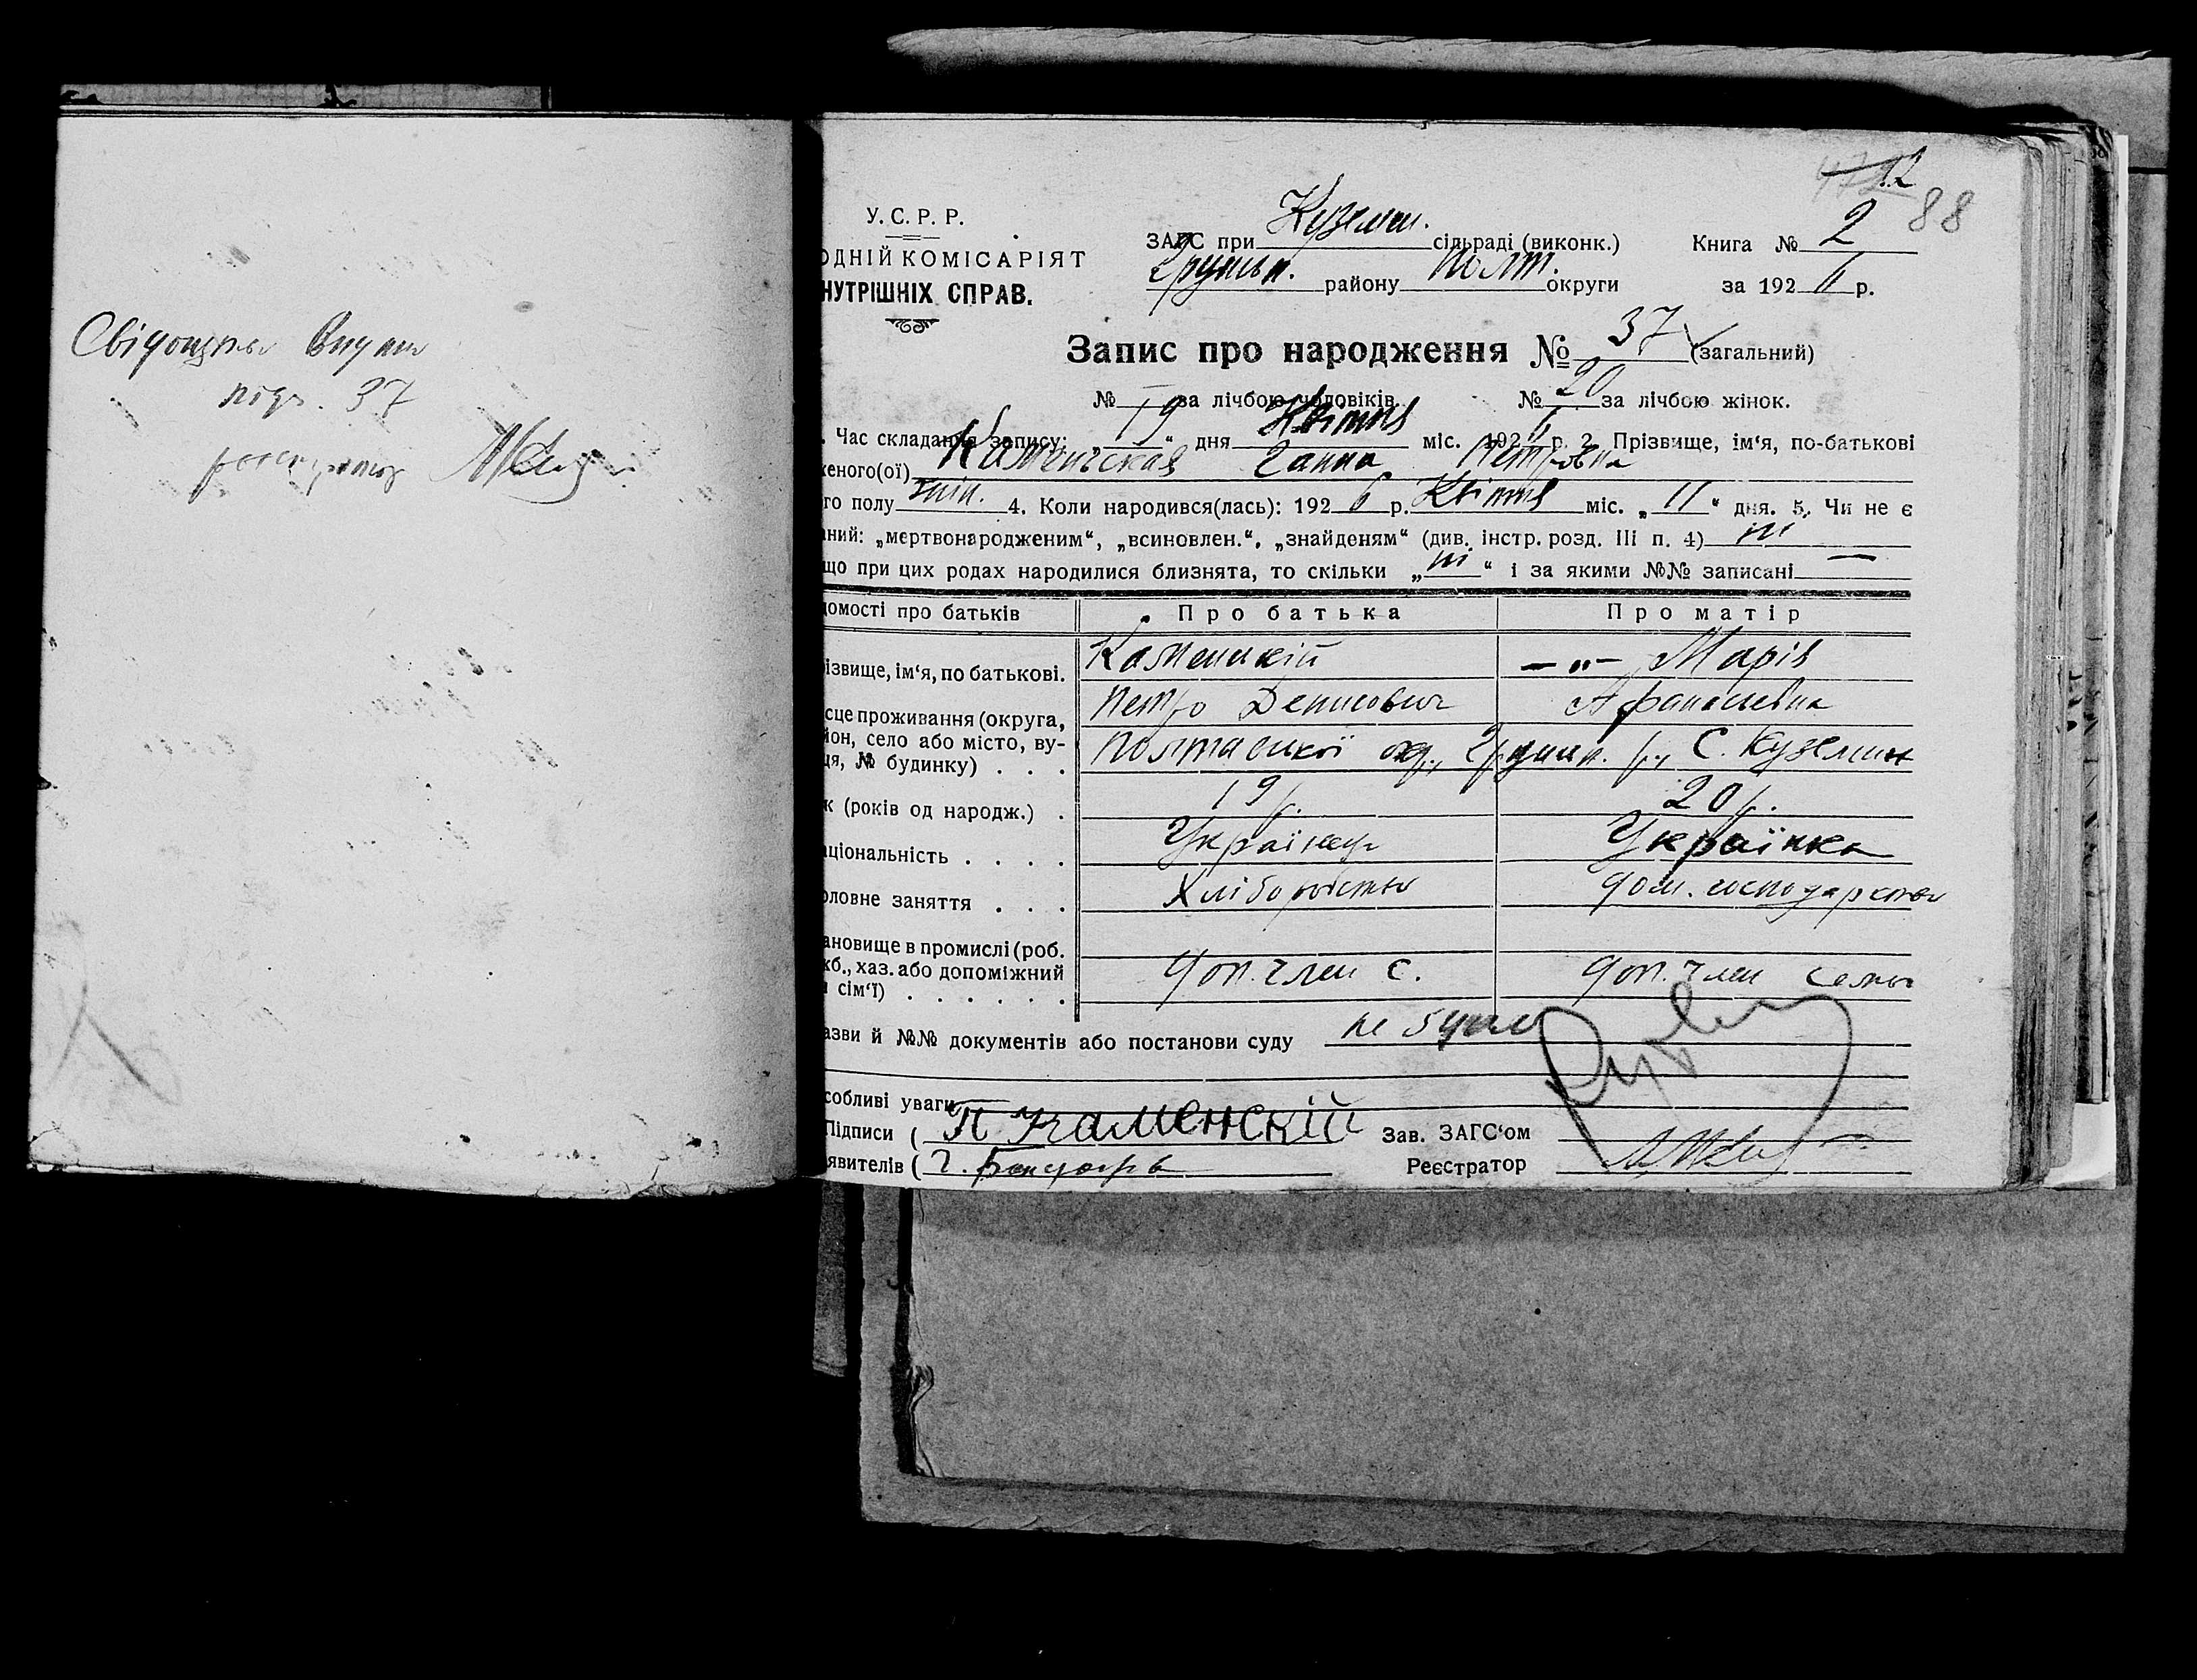 Свідоцтво видано
під. 37
реєстратор
12
88
У.С.Р.Р.
ОДНІЙ КОМІСАРІЯТ
НУТРІШНІХ СПРАВ.
ЗАГС при Куземен. сільраді (виконк.)
Грунськ. району Полт. округи
Книга № 2
за 1926 р.
Запис про народження № 37 (загальний)
№ — за лічбою чоловіків. № 20 за лічбою жінок.
. Час складання запису: 19 “ дня Квітня міс. 1926 р. 2. Прізвище, ім‘я, по-батькові
женого(ої) Каменська Ганна Петровна
го полу жін. 4. Коли народився(лась): 1926 р. Квітня міс. „ 11 “ дня. 5. Чи не є
аний: „мертвонародженим“, „всиновлен.“, „знайденям“ (див. інстр. розд. III п. 4) ні
що при цих родах народилися близнята, то скільки „ ні “ і за якими №№ записані —
домості про батьків Про батька Про матір
різвище, ім‘я, по батькові. Каменський —„— Марія
Петро Денисович Афанасьевна
сце проживання (округа,
йон, село або місто, ву-
ця, № будинку) . . . Полтавської окр., Грунськ. р., С. Куземин
к (років од народж.) . 19 р. 20 р.
аціональність . . . . Українець Українка
оловне заняття . . . Хліборобство дом. господарство
ановище в промислі (роб.
жб., хаз. або допоміжний
н сім‘ї) . . . . . . доп. член с. доп. член семьи
азви й №№ документів або постанови суду не було
собливі уваги
Підписи ( П Каменский Зав. ЗАГС‘ом
явителів ( Г. Реєстратор